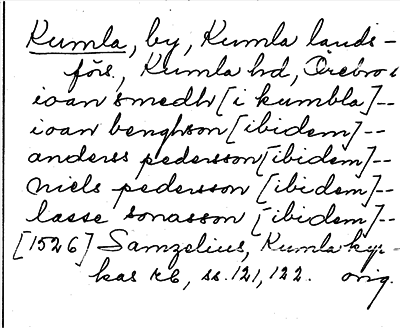 Kumla, by, Kumla lands-
förs., Kumla hd, Örebro l
ioan smedh [i kumbla]--
ioan benghson [ibidem]--
anderss pedersson [ibidem]--
niels pedersson [ibidem]--
lasse ionasson [ibidem]--
[1526] Samzelius, Kumla kyr-
kas rb, ss. 121, 122. orig.